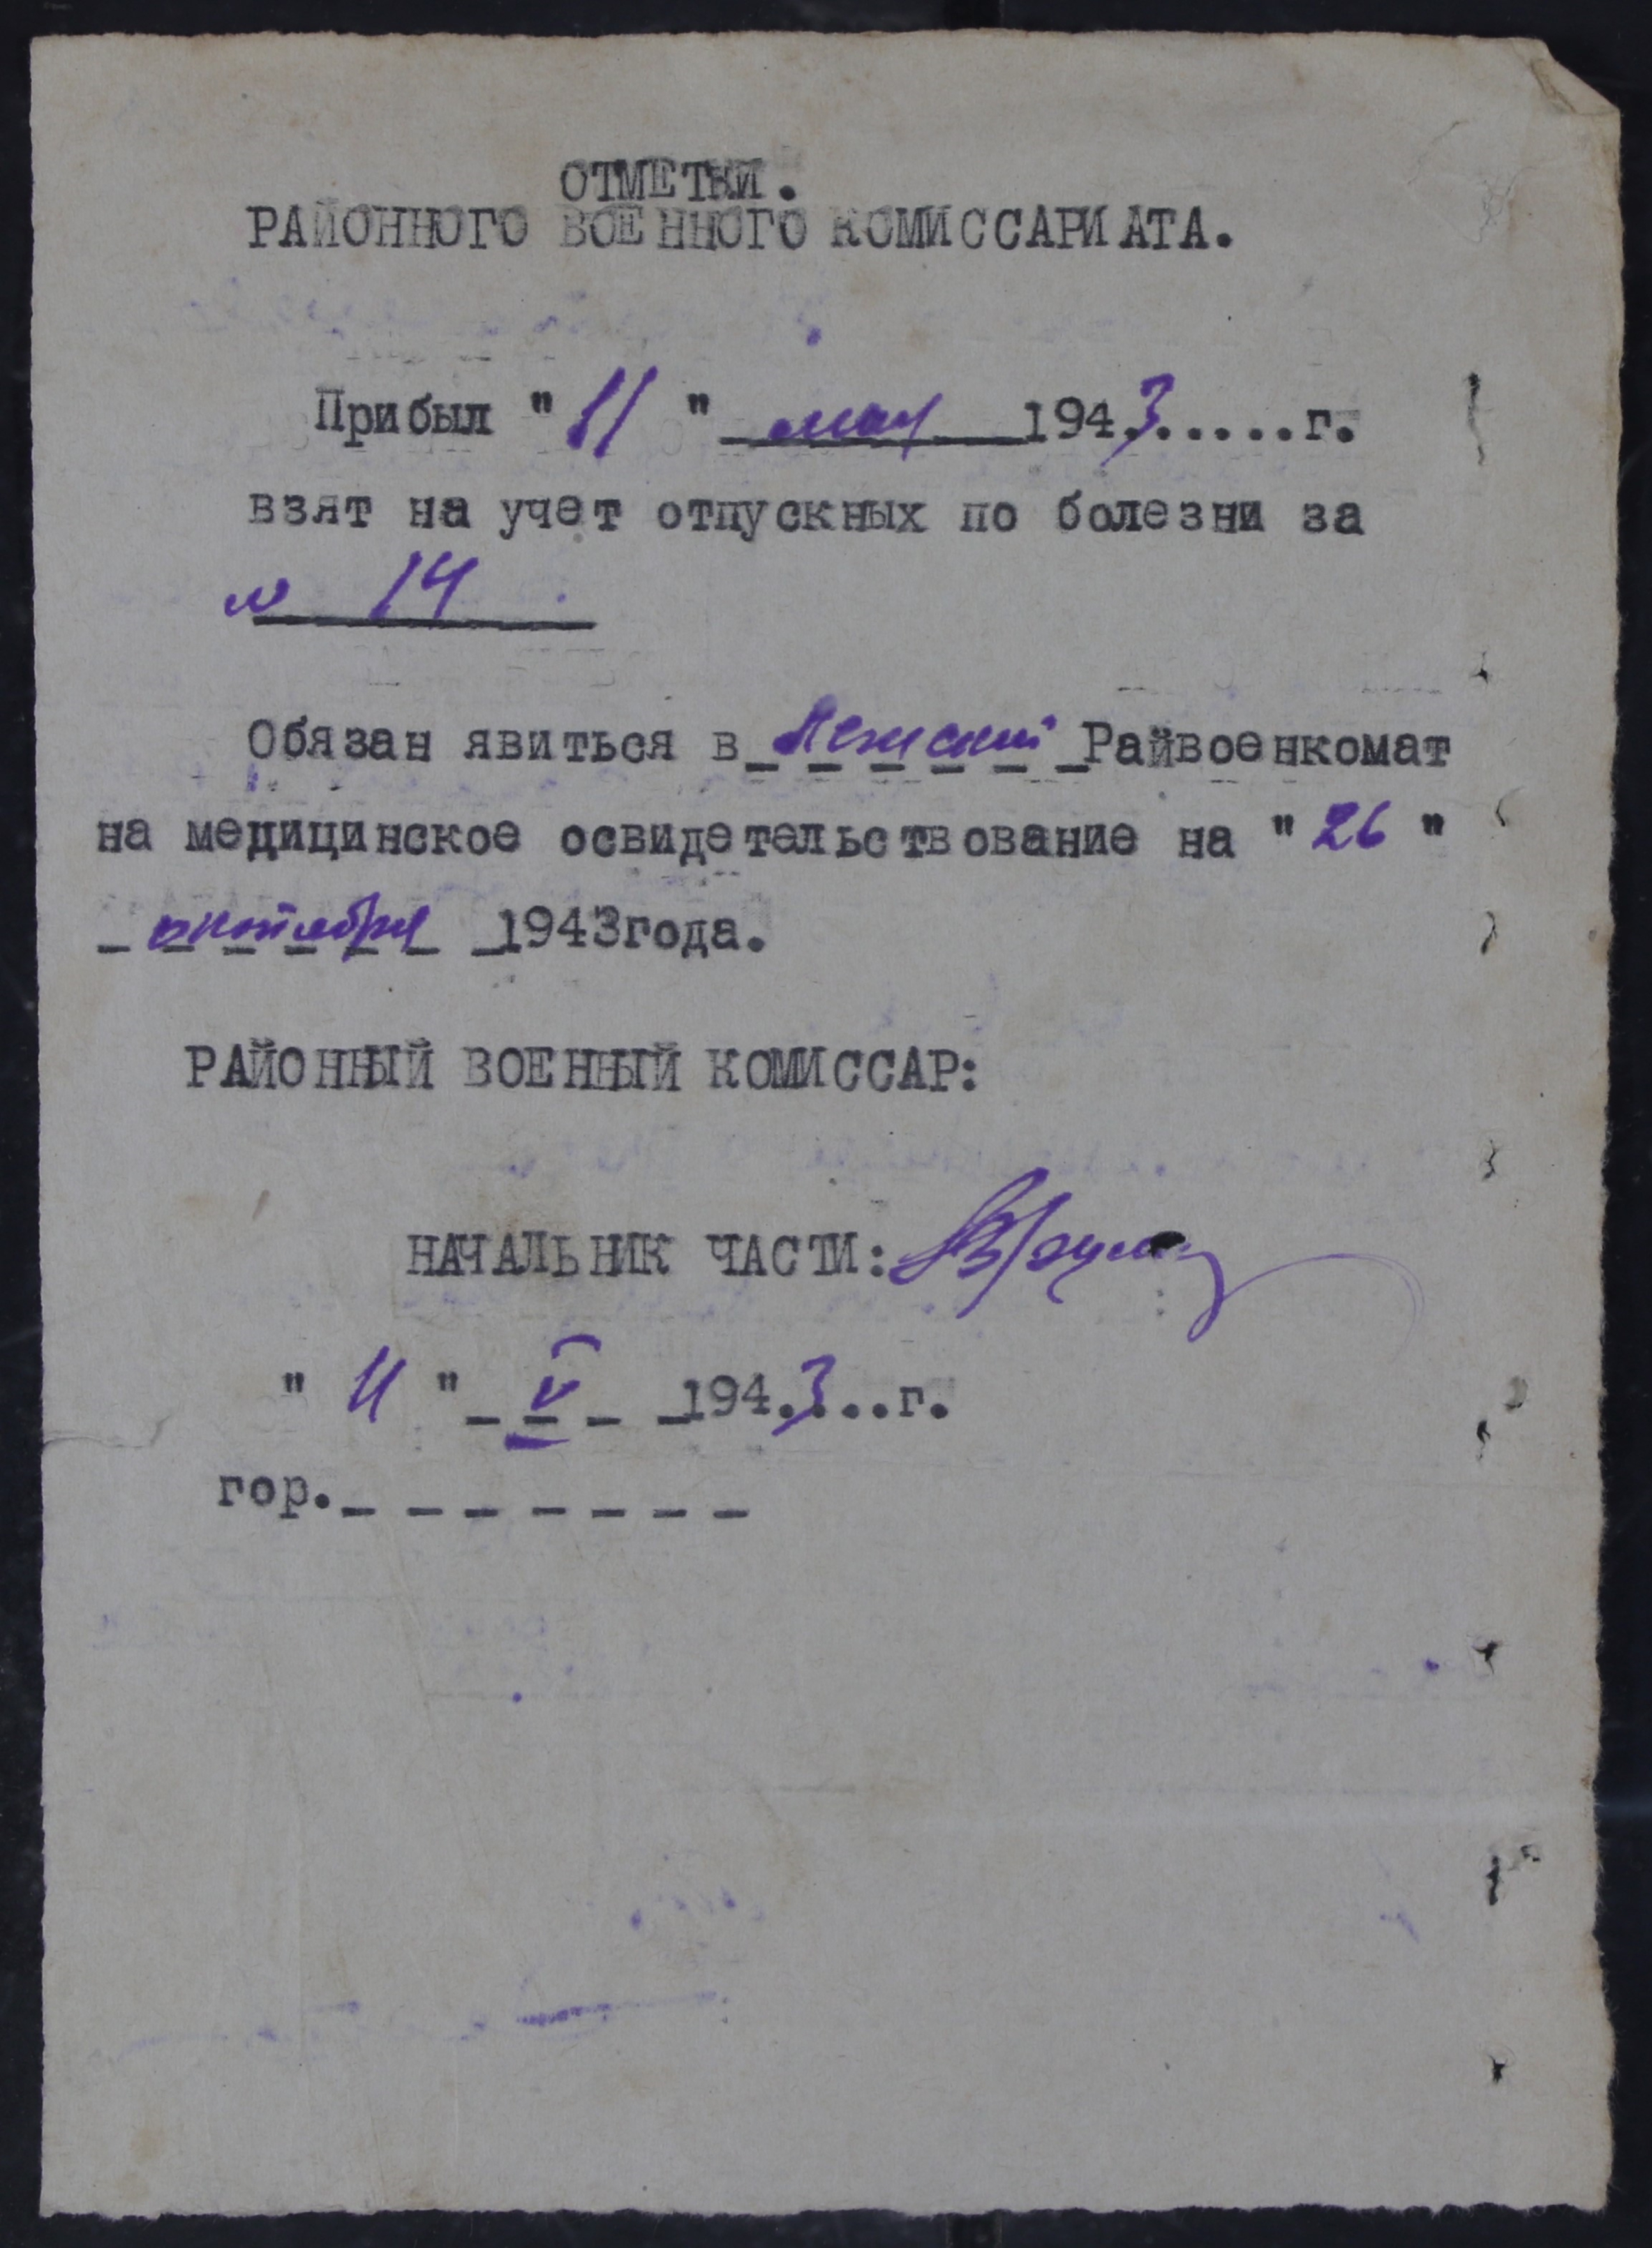 ОТМЕТКИ.
РАЙОННОГО ВОЕННОГО КОМИССАРИАТА.
Прибыл "11" мая 1943.....г.
взят на учет отпускных по болезни за
№ 14
Обязан явиться в Райвоенкомат
на медицинское освидетельствование на "26"
октября 1943года.
РАЙОННЫЙ ВОЕННЫЙ КОМИССАР:
НАЧАЛЬНИК ЧАСТИ:
"11" V 1943...г.
гор.